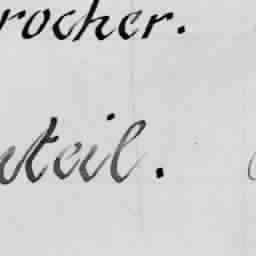 rocher.
uteil.